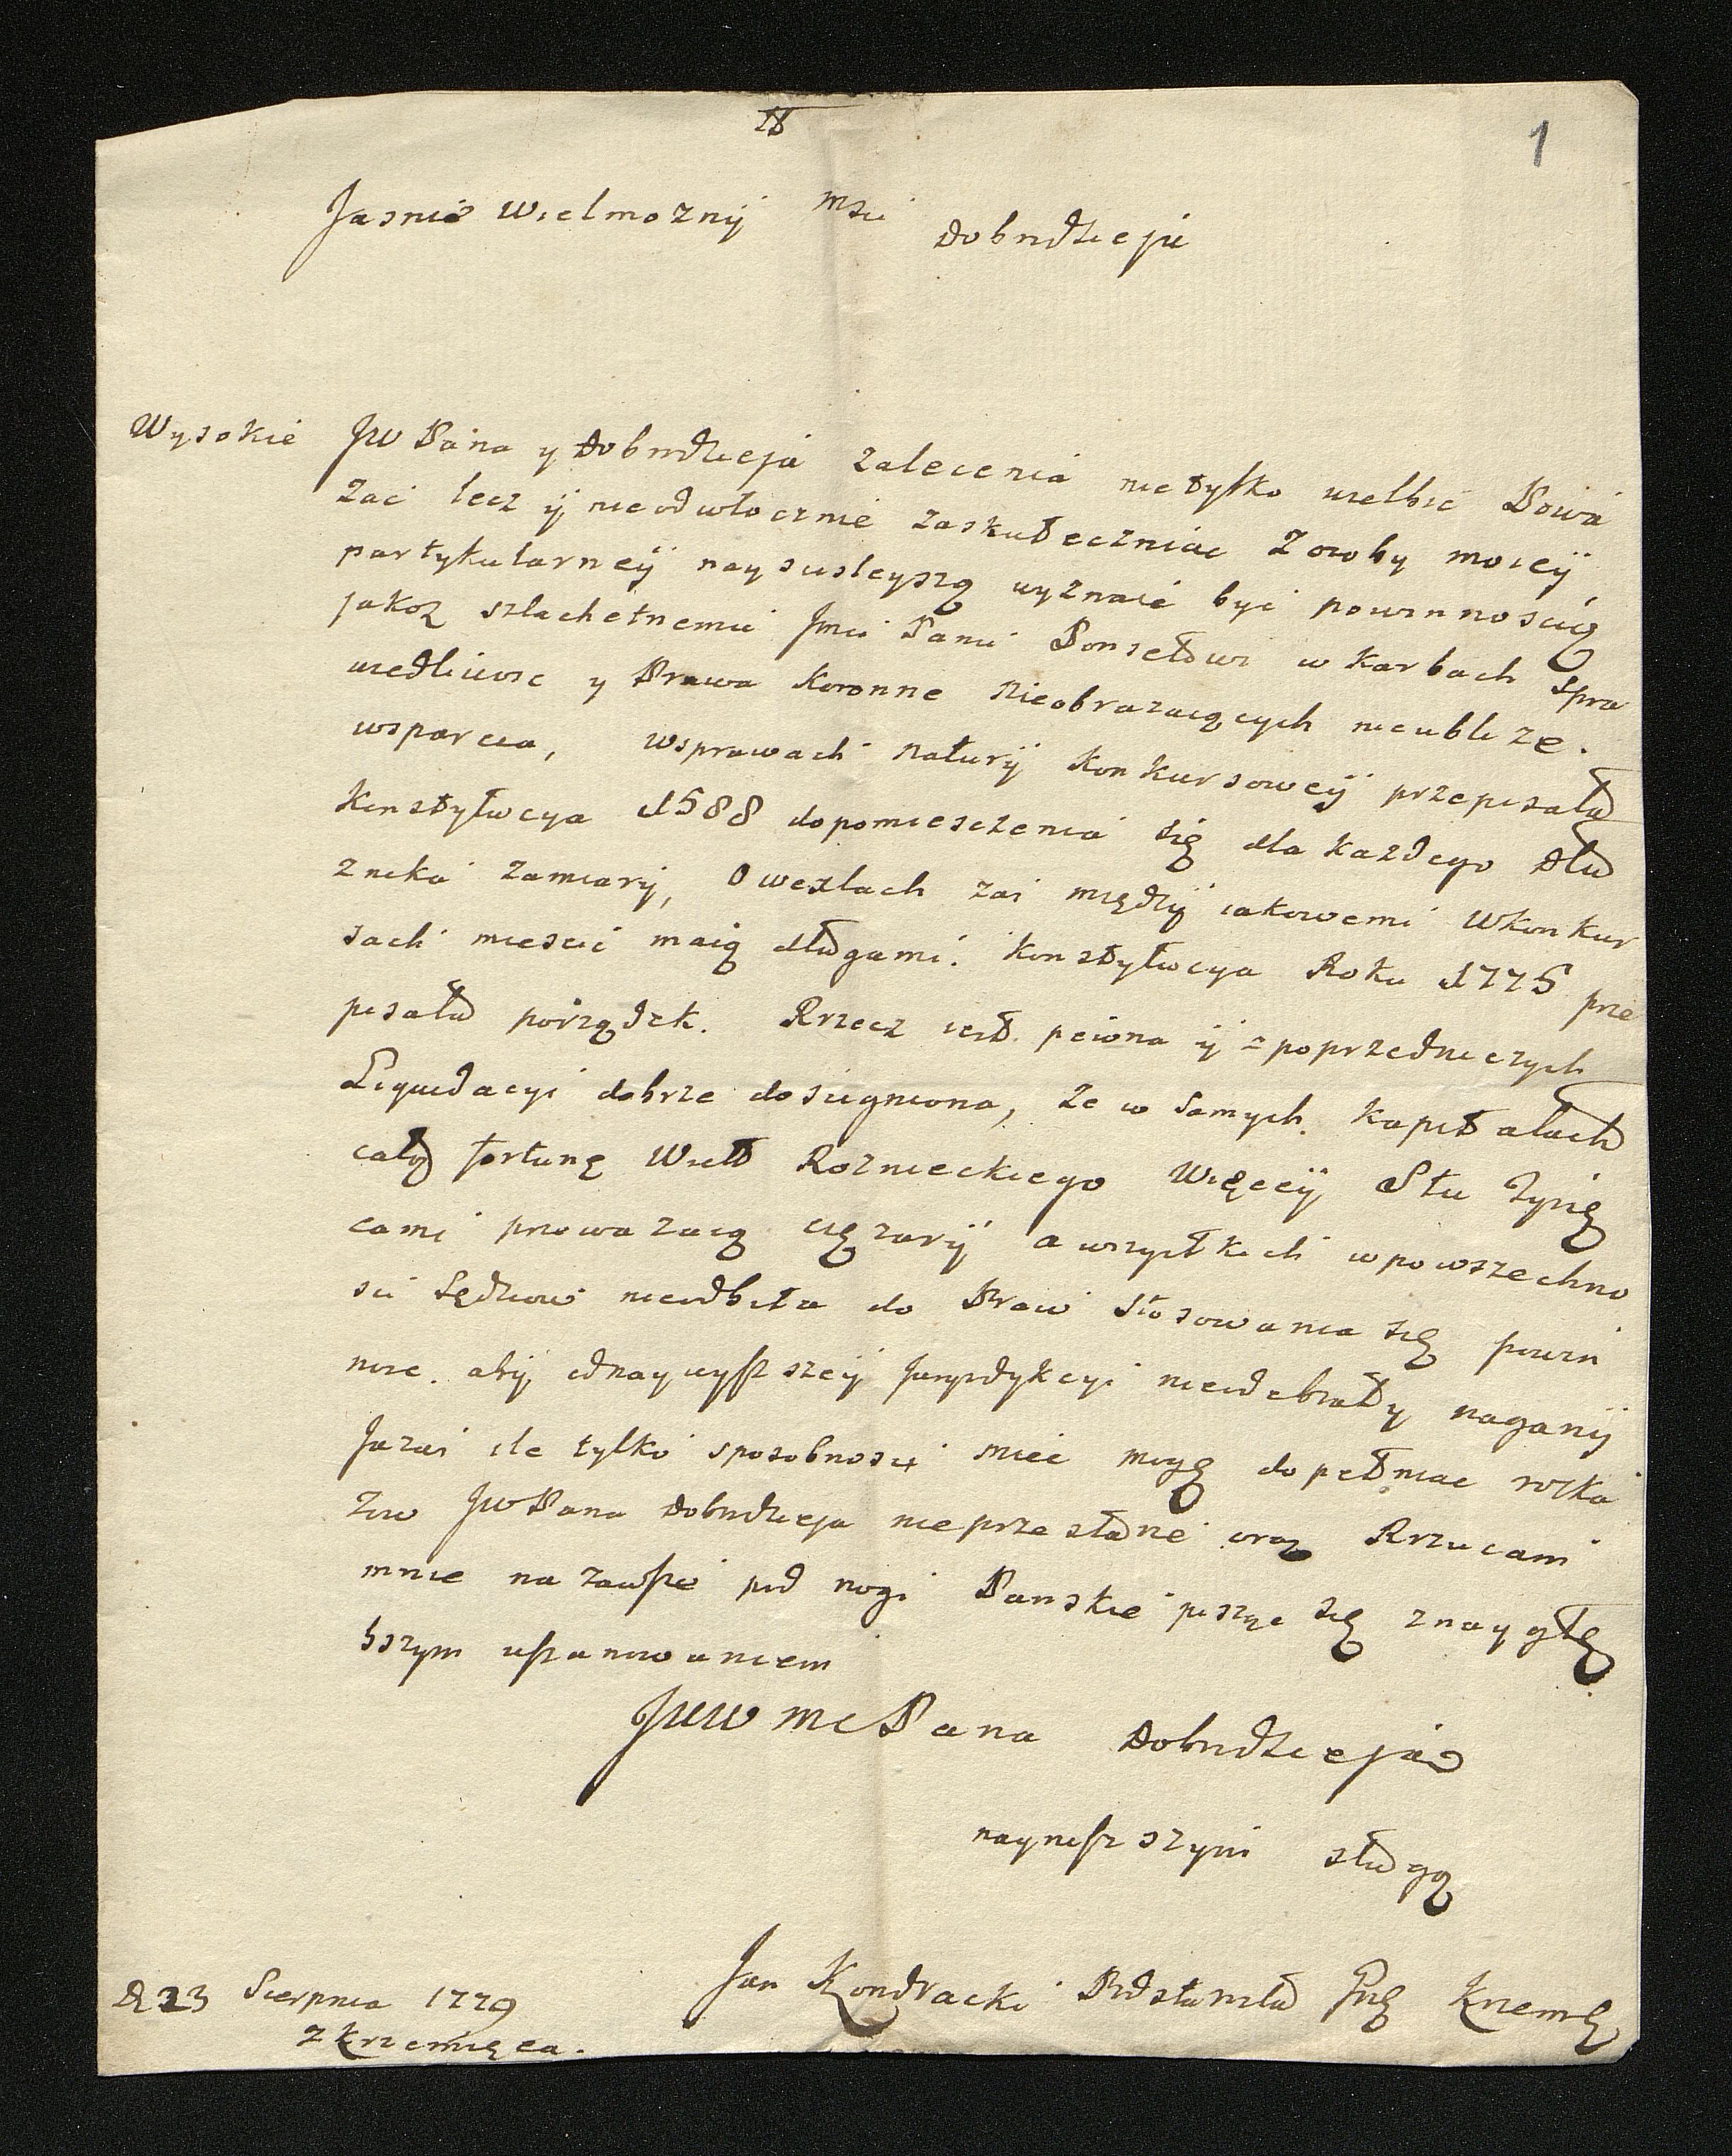 1
Jasnie Wielmozny Msci Dobrodzieju
Wysokie JW Pana y Dobrodzieja zalecenia nie tylko wielbić Powa
zać lecz y nieodwłocznie zaskuteczniac z osoby moiey
partykularney naysciśleyszą wyznaię być powinnoscią
jakoz szlachetnemu Jmci Panu w karbach Spra
wiedliwosc y Prawa koronne nieobrazaiących nieubliżę.
wsparcia, w sprawach natury konkursowey przepisała
konstytucya 1588 do pomieszczenia się dla każdego Dłu
znika zamiary, O wexlach zaś między iakowemi w konkur
sach miescić maią długami. konstytucya Roku 1775 prze
pisała porządek. Rzecz iest pewna y z poprzedniczych
Liquidacyi dobrze dosiągniona, że w samych kapitałach
całą fortunę Wielt Roznieckiego więcey Stu Tysię
cami przewazaią cięzary a wszystkich w powszechno
sci Sędziow nieodbita do Praw stosowania się powin
nosc. aby od naywyższey Juryzdykcyi nieodebrały nagany
Ja zaś ile tylko sposobnosci mieć mogę dopełniac rozka
zow JW Pana Dobrodzieja nieprzestanę oraz Rzucam
mnie na zawsze pod nogi Panskie pisząc się z naygłę
bszym uszanowaniem
JWW Mc Pana Dobrodzieja
nayniższym sługą
Jan Kondracki Krzemę
D 23 Sierpnia 1779
z Krzemięca.